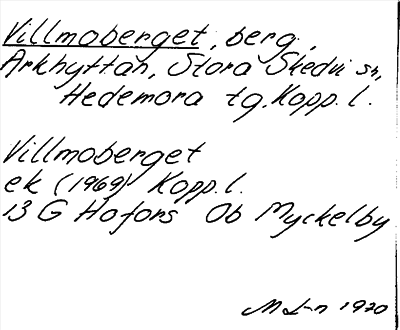 Villmoberget, berg,
Arkhyttan, Stora Skedvi sn,
Hedemora tg. Kopp. l.
Villmoberget
ek (1969) Kopp. l.
13 G Hofors Ob Myckelby
M L-n 1970